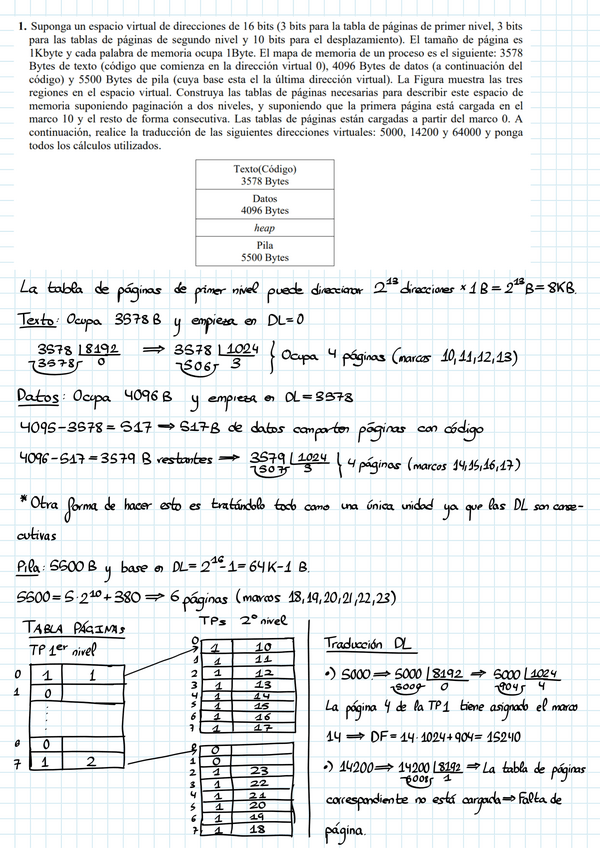 1. Suponga un espacio virtual de direcciones de 16 bits (3 bits para la tabla de páginas de primer nivel, 3 bits
para las tablas de páginas de segundo nivel y 10 bits para el desplazamiento). El tamaño de página es
1Kbyte y cada palabra de memoria ocupa 1Byte. El mapa de memoria de un proceso es el siguiente: 3578
Bytes de texto (código que comienza en la dirección virtual 0), 4096 Bytes de datos (a continuación del
código) y 5500 Bytes de pila (cuya base esta el la última dirección virtual). La Figura muestra las tres
regiones en el espacio virtual. Construya las tablas de páginas necesarias para describir este espacio de
memoria suponiendo paginación a dos niveles, y suponiendo que la primera página está cargada en el
marco 10 y el resto de forma consecutiva. Las tablas de páginas están cargadas a partir del marco 0. A
continuación, realice la traducción de las siguientes direcciones virtuales: 5000, 14200 y 64000 y ponga
todos los cálculos utilizados.
Texto(Código)
3578 Bytes
Datos
4096 Bytes
heap
Pila
5500 Bytes
La tabla de páginas de primer nivel puede direccionar 2^13 direcciones × 1B = 2^13 B = 8KB.
Texto: Ocupa 3578 B y empieza en DL=0
3578 | 8192 ⇒ 3578 | 1024
3578 0 506 3 } Ocupa 4 páginas (marcos 10,11,12,13)
Datos: Ocupa 4096 B y empieza en DL=3578
4095-3578 = 517 ⇒ 517B de datos comparten páginas con código
4096-517 = 3579 B restantes ⇒ 3579 | 1024 } 4 páginas (marcos 14,15,16,17)
507 3
* Otra forma de hacer esto es tratándolo todo como una única unidad ya que las DL son conse-
cutivas
Pila: 5500 B y base en DL= 2^16-1 = 64K-1 B.
5500 = 5·2^10+380 ⇒ 6 páginas (marcos 18,19,20,21,22,23)
TABLA PÁGINAS
TP 1er nivel
0 1 1
1 0
6 0
7 1 2
TPs 2º nivel
0 1 10
1 1 11
2 1 12
3 1 13
4 1 14
5 1 15
6 1 16
7 1 17
0 0
1 0
2 1 23
3 1 22
4 1 21
5 1 20
6 1 19
7 1 18
Traducción DL
•) 5000 ⇒ 5000 | 8192 ⇒ 5000 | 1024
5000 0 904 4
La página 4 de la TP1 tiene asignado el marco
14 ⇒ DF = 14·1024+904 = 15240
•) 14200 ⇒ 14200 | 8192 ⇒ La tabla de páginas
6008 1
correspondiente no está cargada ⇒ Falta de
página.